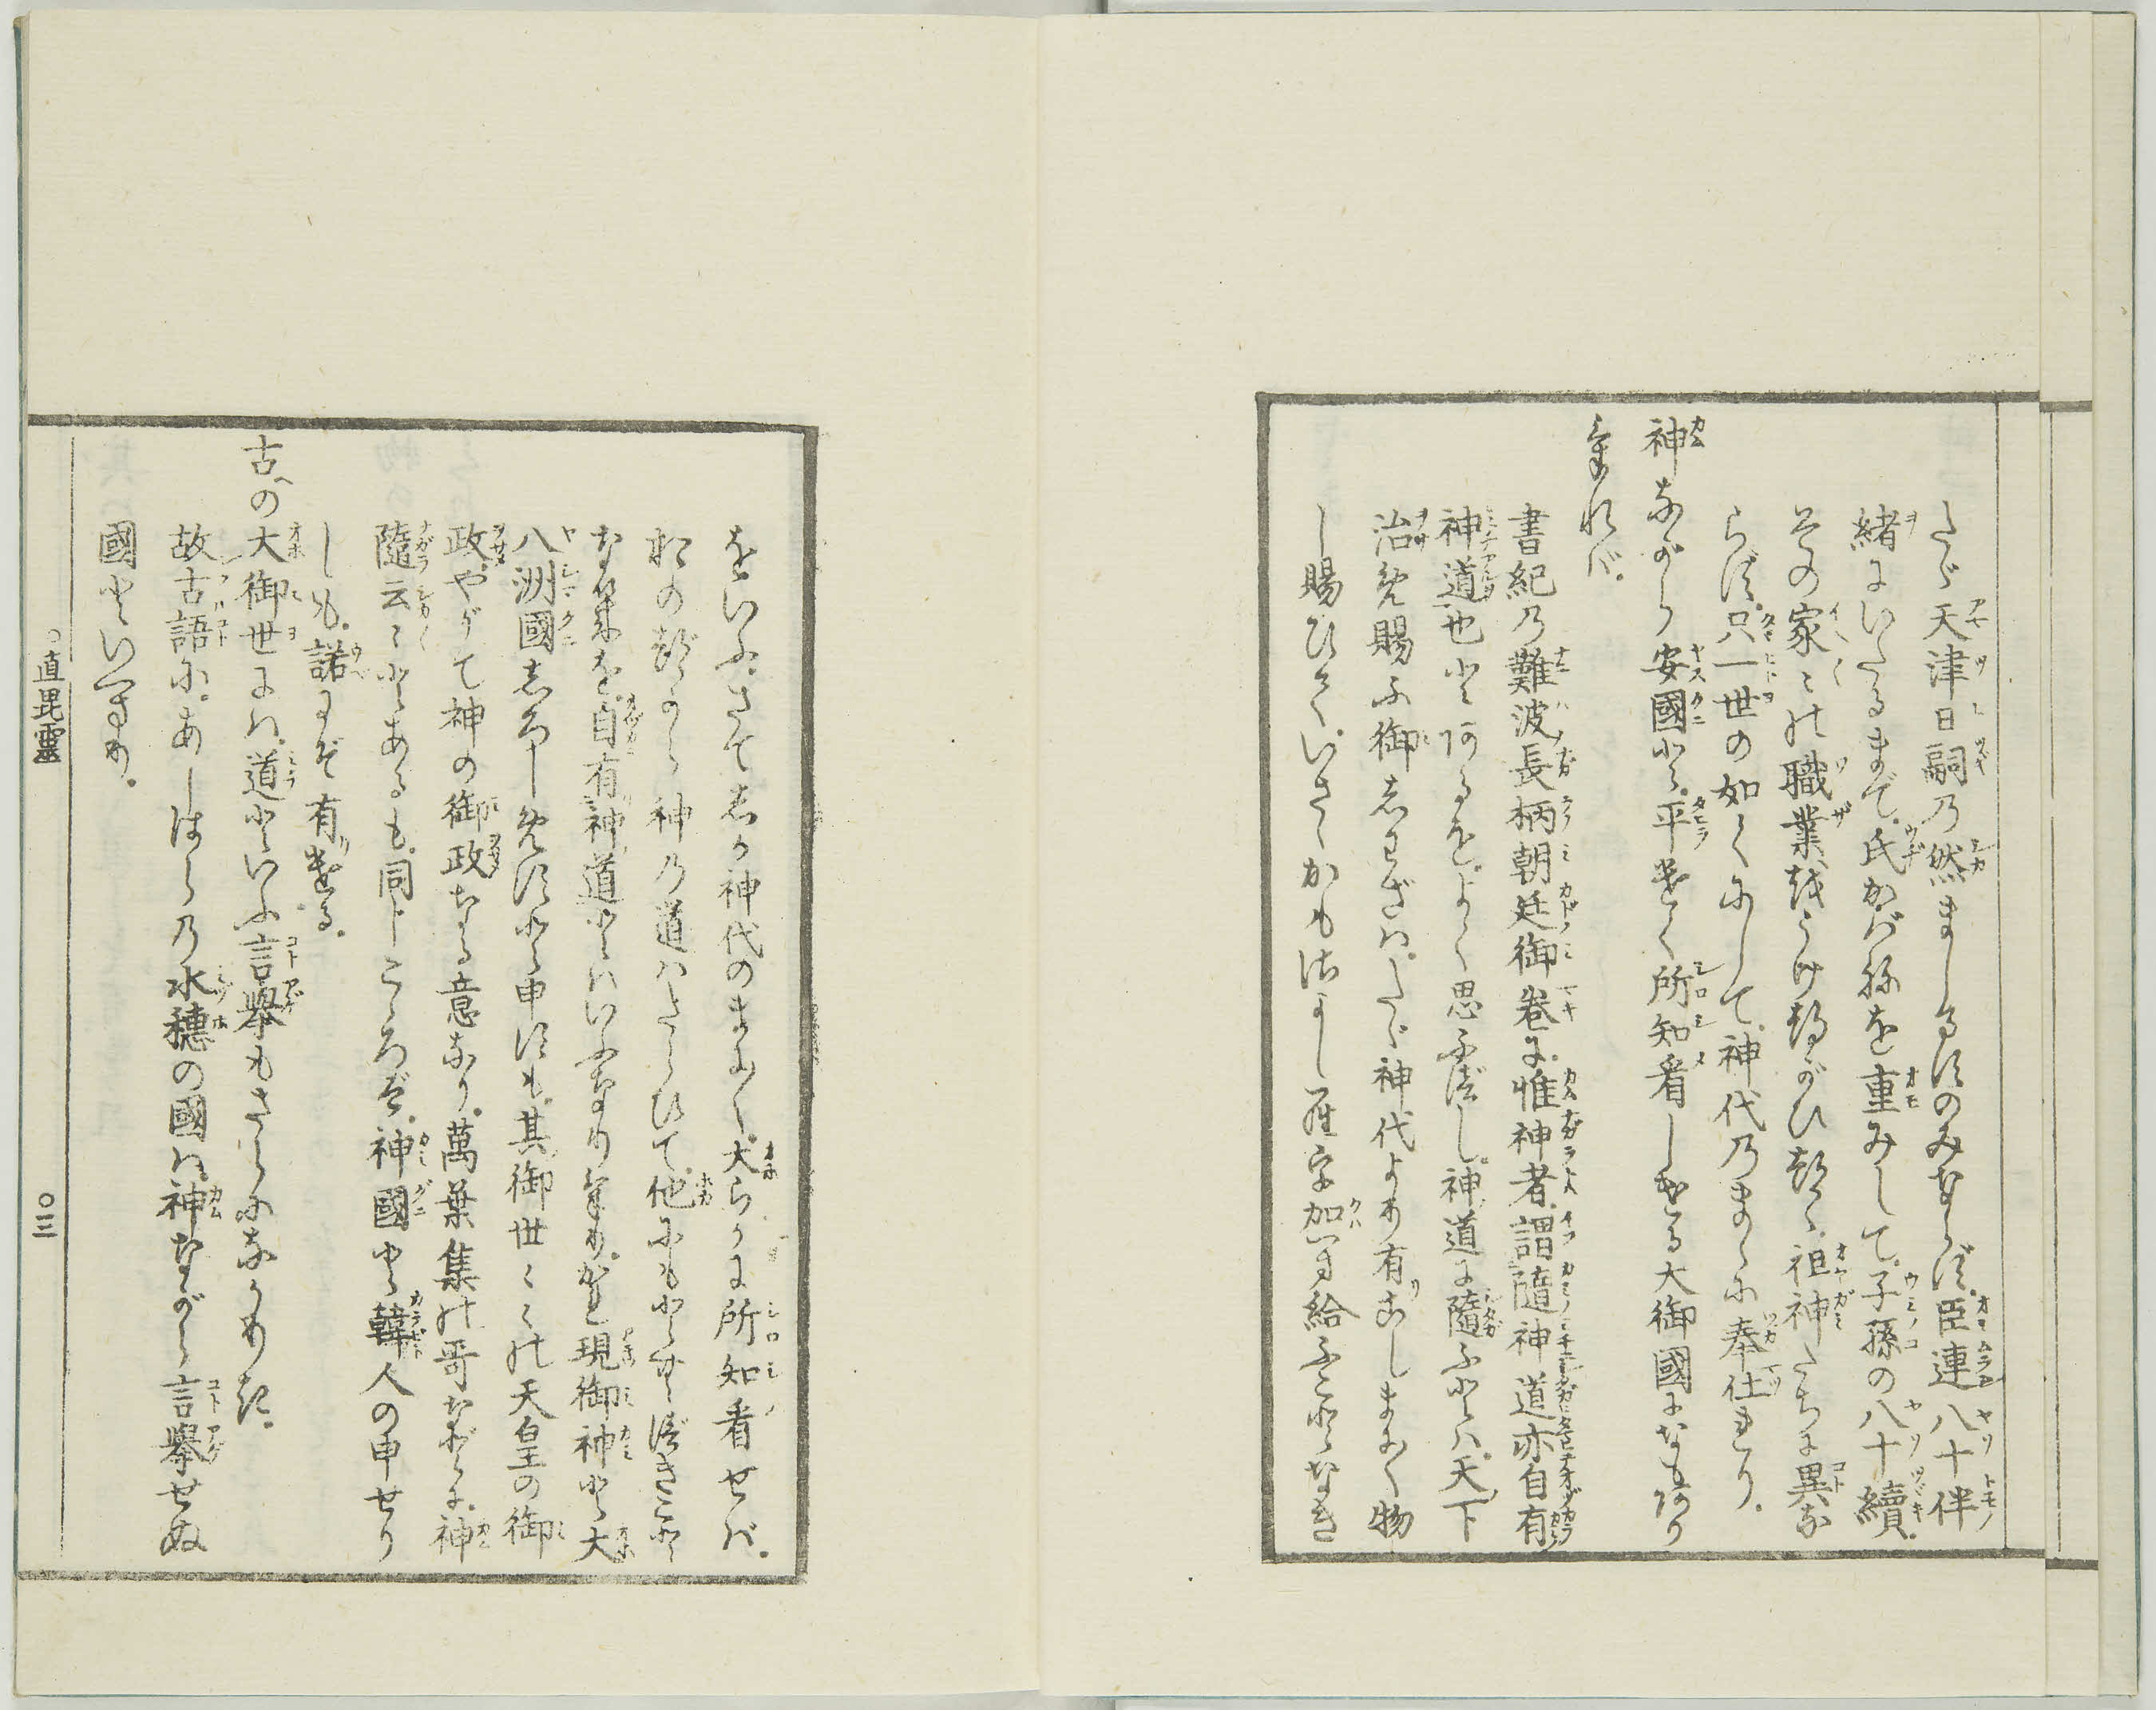 たゞ天津日嗣の然ましますのみならず。臣連八十伴
緒にいたるまで。氏かばねを重みして。子孫の八十續。
その家々の職業をうけつがひつゝ。祖神たちに異な
らず。只一世の如くにして。神代のまゝに奉仕れり。
神ながら安國と。平けく所知看しける大御國になもあり
ければ。
書紀の難波長柄朝廷御卷に。惟神者。謂隨神道亦自有
神道也とあるを。よく思ふべし。神道に隨ふとは。天下
治め賜ふ御しわざは。たゞ神代より有こしまに〱物
し賜ひて。いさゝかもさかしらを加へ給ふことなき
をいふ。さてしか神代のまに〱。大らかに所知看せば。
おのづから神の道はたらひて。他にもとむべきこと
なきを。自有神道とはいふなりけり。かれ現御神と大
八洲國しろしめすと申すも。其御世々々の天皇の御
政。やがて神の御政なる意なり。萬葉集の哥などに。神
隨云々とあるも。同じこゝろぞ。神國と韓人の申せり
しも。諾にぞ有ける。
古への大御世には。道といふ言擧もさらになかりき。
故古語に。あしはらの水穗の國は。神ながら言擧せぬ
國といへり。
○直毘靈
○三